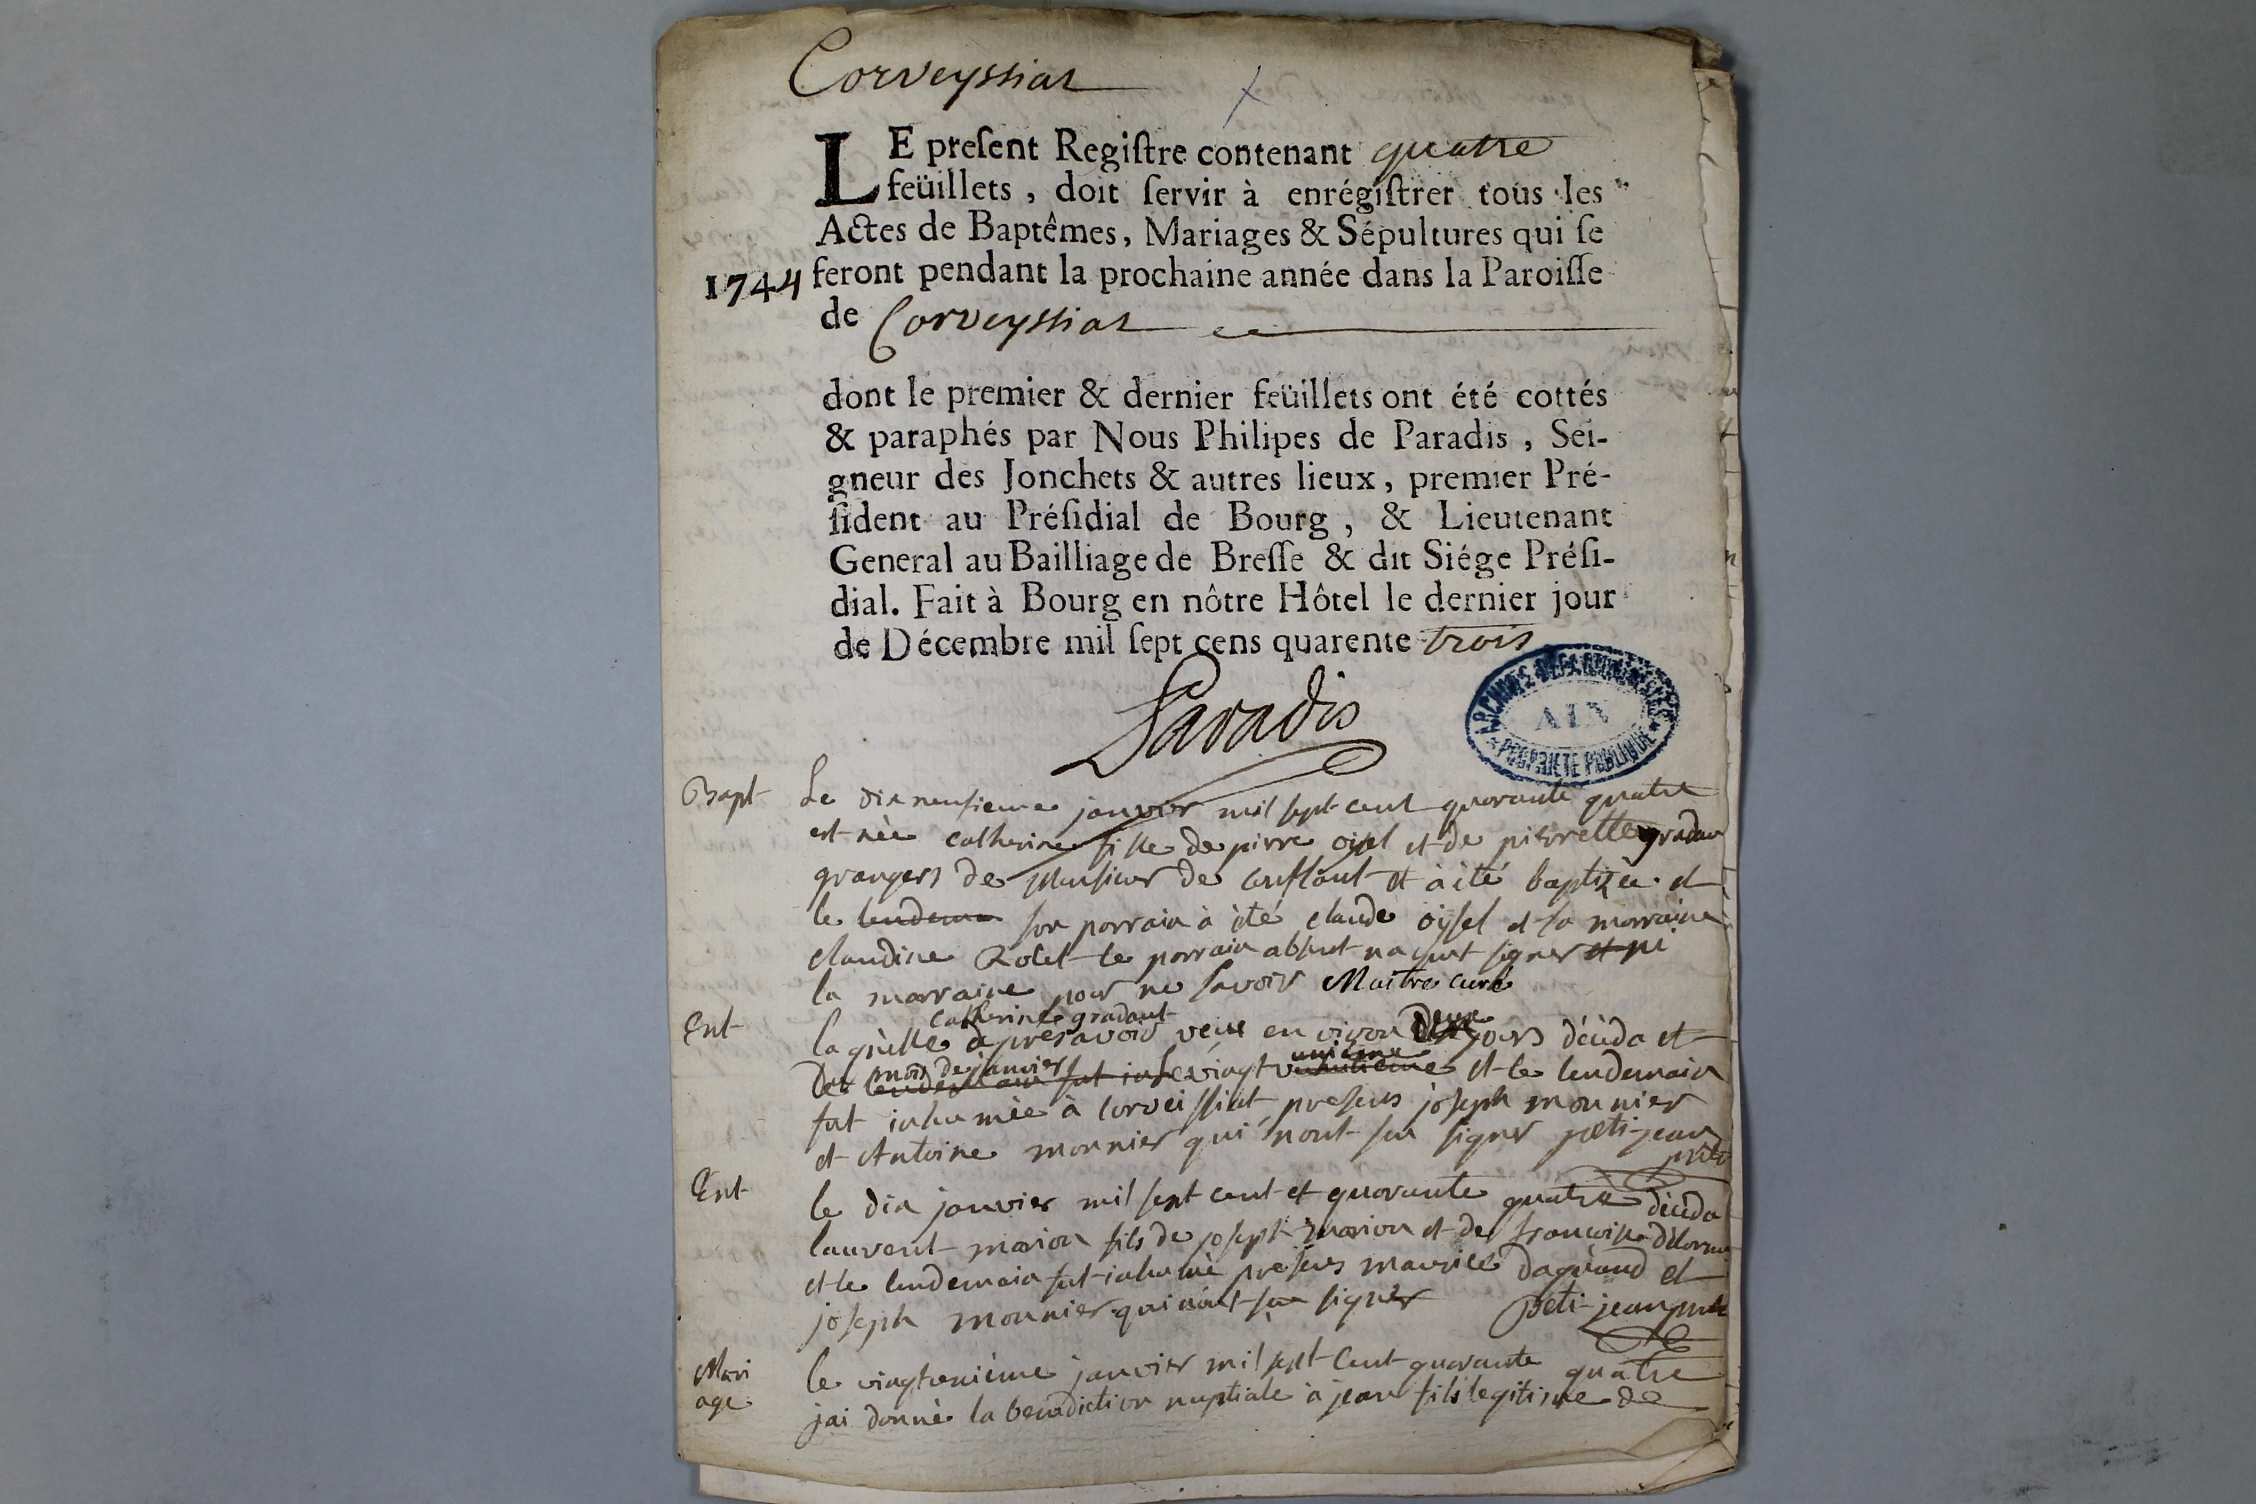 Corveyssiat
LE preſent Regiſtre contenant quatre
feüillets, doit ſervir à enrégiſtrer tous les
Actes de Baptêmes, Mariages & Sépultures qui ſe
1744 feront pendant la prochaine année dans la Paroiſſe
de Corveyssiat
dont le premier & dernier feüillets ont été cottés
& paraphés par Nous Philipes de Paradis, Sei-
gneur des Jonchets & autres lieux, premier Pré-
ſident au Préſidial de Bourg, & Lieutenant
General au Bailliage de Breſſe & dit Siége Préſi-
dial. Fait à Bourg en nôtre Hôtel le dernier jour
de Décembre mil ſept cens quarente trois
Paradis
ARCHIVES DEPARTEMENTALES
AIN
PROPRIETE PUBLIQUE
Bapt Le dixneufieme janvier mil sept cent quarante quatre
est née catherine fille de pierre oysel et de pierrette gradan
grangers de Monsieur de conflant et à été baptizèe et
le lendemain son parrain à été claude oysel et sa marraine
claudine Rolet le parrain absent na peut signer et ni
la marraine pour ne savoir Maitre curé
catherine gradant
Ent laquelle aprés avoir veÿue environ deux jours décéda et
mois de janvier unième
le vingt et le lendemain
fut inhumèe à corveissiat presens joseph monnier
et Antoine monnier qui nont su signer peti-jean
prêtre
Ent le dix janvier mil sept cent et quarante quatre décéda
laurent marion fils de joseph marion et de françoise délorme
et le lendemain fut inhumè presens maurice daguand et
joseph monnier qui n'ont su signer peti-jean prêtre
Mari le vingtunième janvier mil sept cent quarante quatre
age jai donnè la benediction nuptiale à jean fils legitime de